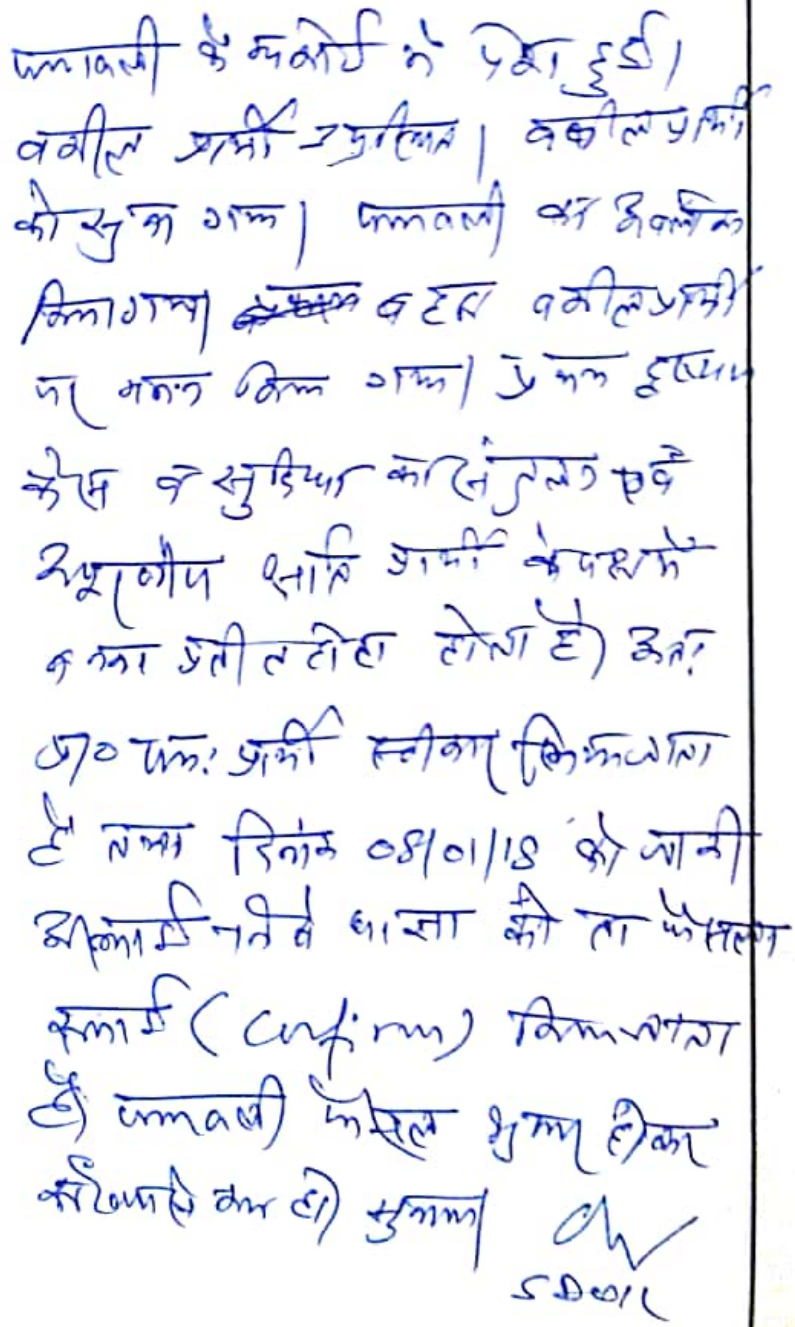 पत्रावली के कैम्प कोर्ट में पेश हुई।
वकील प्रार्थी उपस्थित। वकील प्रार्थी
को सुना गया। पत्रावली का अवलोकन
किया गया। बहस वकील प्रार्थी
पर मनन किया गया। प्रथम दृष्टया
केस व सुविधा का संतुलन एवं
अपूरणीय क्षति प्रार्थी के पक्ष में
बनना प्रतीत होता है। अतः
प्रा० पत्र प्रार्थी स्वीकार किया जाता
है तथा दिनांक 08/01/18 को जारी
अस्थाई निषेधाज्ञा को ता फैसला
स्थाई (Confirm) किया जाता
है। पत्रावली फैसल शुमार होकर
नम्बर से कम हो। सुनाया।
SDO